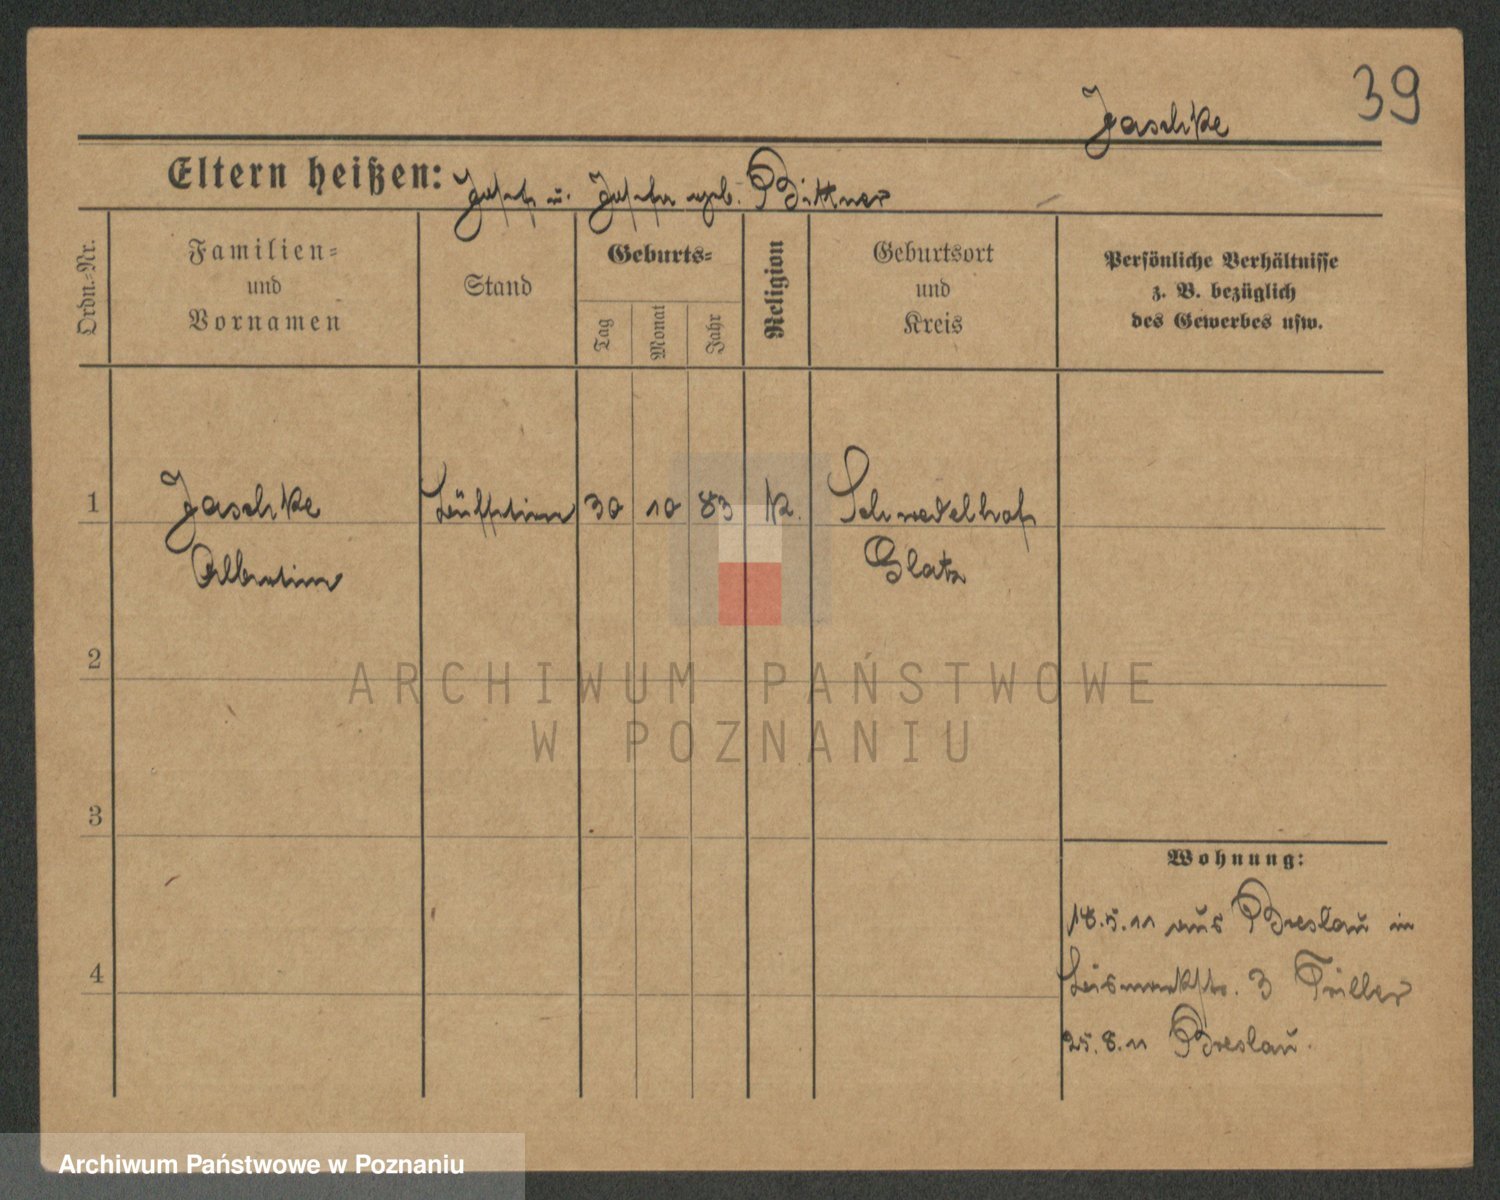 39
Jaschke
Eltern heißen: Josef u. Josefa geb. Bittner
Ordn.-Nr.
Familien-
und
Vornamen
Stand
Geburts-
Tag
Monat
Jahr
Religion
Geburtsort
und
Kreis
Persönliche Verhältnisse
z. B. bezüglich
des Gewerbes usw.
1 Jaschke 30 10 83 K.
Albertine Glatz
2
ARCHIWUM PAŃSTWOWE
W POZNANIU
3
Wohnung:
18.5.11 aus Breslau in
Bismarkstr. 3
4
25.8.11 Breslau.
Archiwum Państwowe w Poznaniu